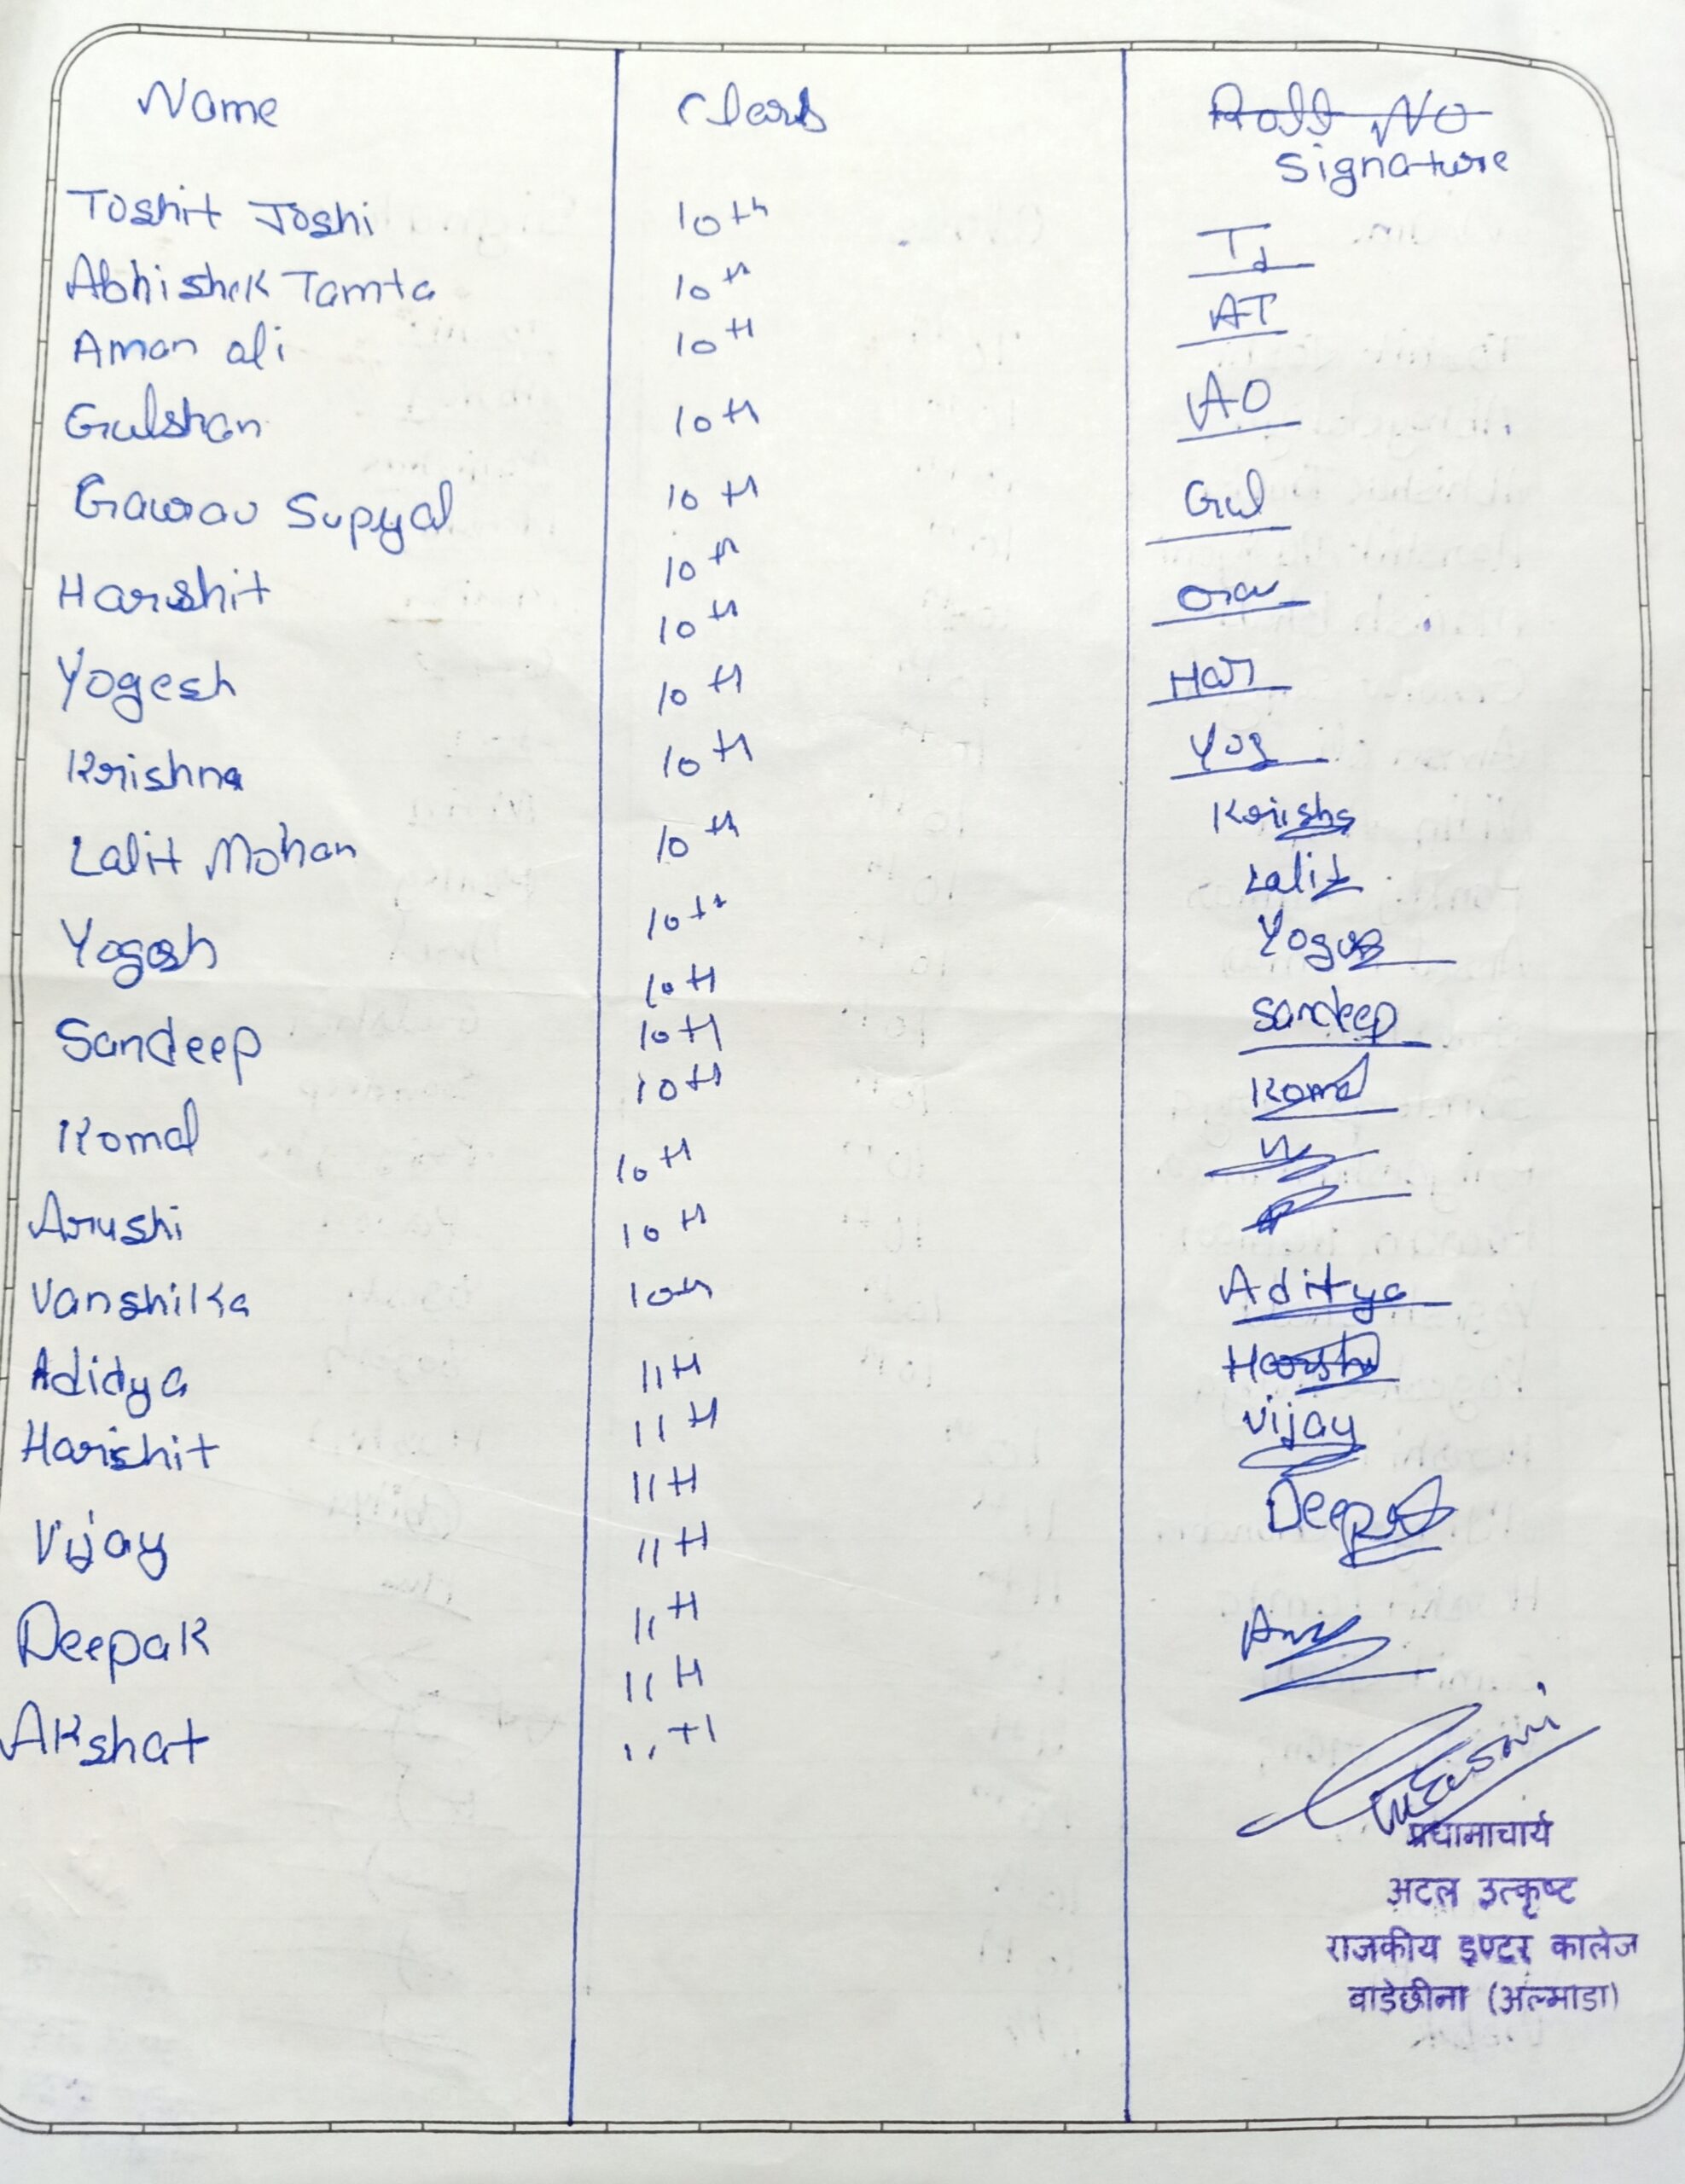 Name Class Roll NO
Signature
Toshit Joshi 10th TJ
Abhishek Tamta 10th AT
Aman ali 10th AO
Gulshan 10th Gul
Gaurav Supyal 10th Gav
Harshit 10th Har
Yogesh 10th Yog
Krishna 10th Krisha
Lalit Mohan 10th Lalit
Yogesh 10th
Sandeep 10th Sandeep
Komal 10th Komal
Arushi 10th
Vanshika 10th
Adidya 10th Aditya
Harishit 10th Harshi
Vijay 11th Vijay
Deepak 11th Deepak
Akshat 11th
11th
11th
11th
11th
प्रधानाचार्य
अटल उत्कृष्ट
राजकीय इण्टर कालेज
बाड़ेछीना (अल्मोडा)